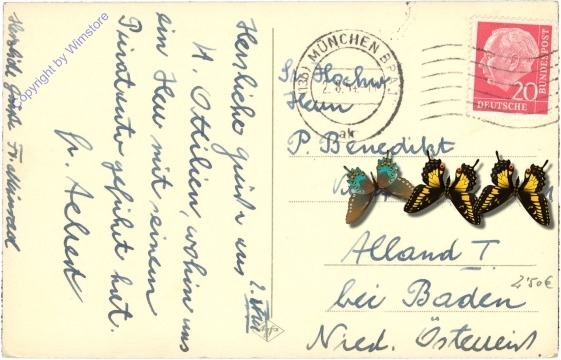 2. VIII
Herzliche Grüße aus
St Ottilien, wohin uns
ein Herr mit seinem
Privatauto geführt hat.
fr.
Herzliche Grüße Fr.
copyright by Wimstore
(13b) MÜNCHEN BPA
2. 8.
ak
DEUTSCHE BUNDESPOST
20
Sr. Hochw.
Herrn
P. Benedikt
Alland T.
bei Baden
Nied. Österreich
2'50€